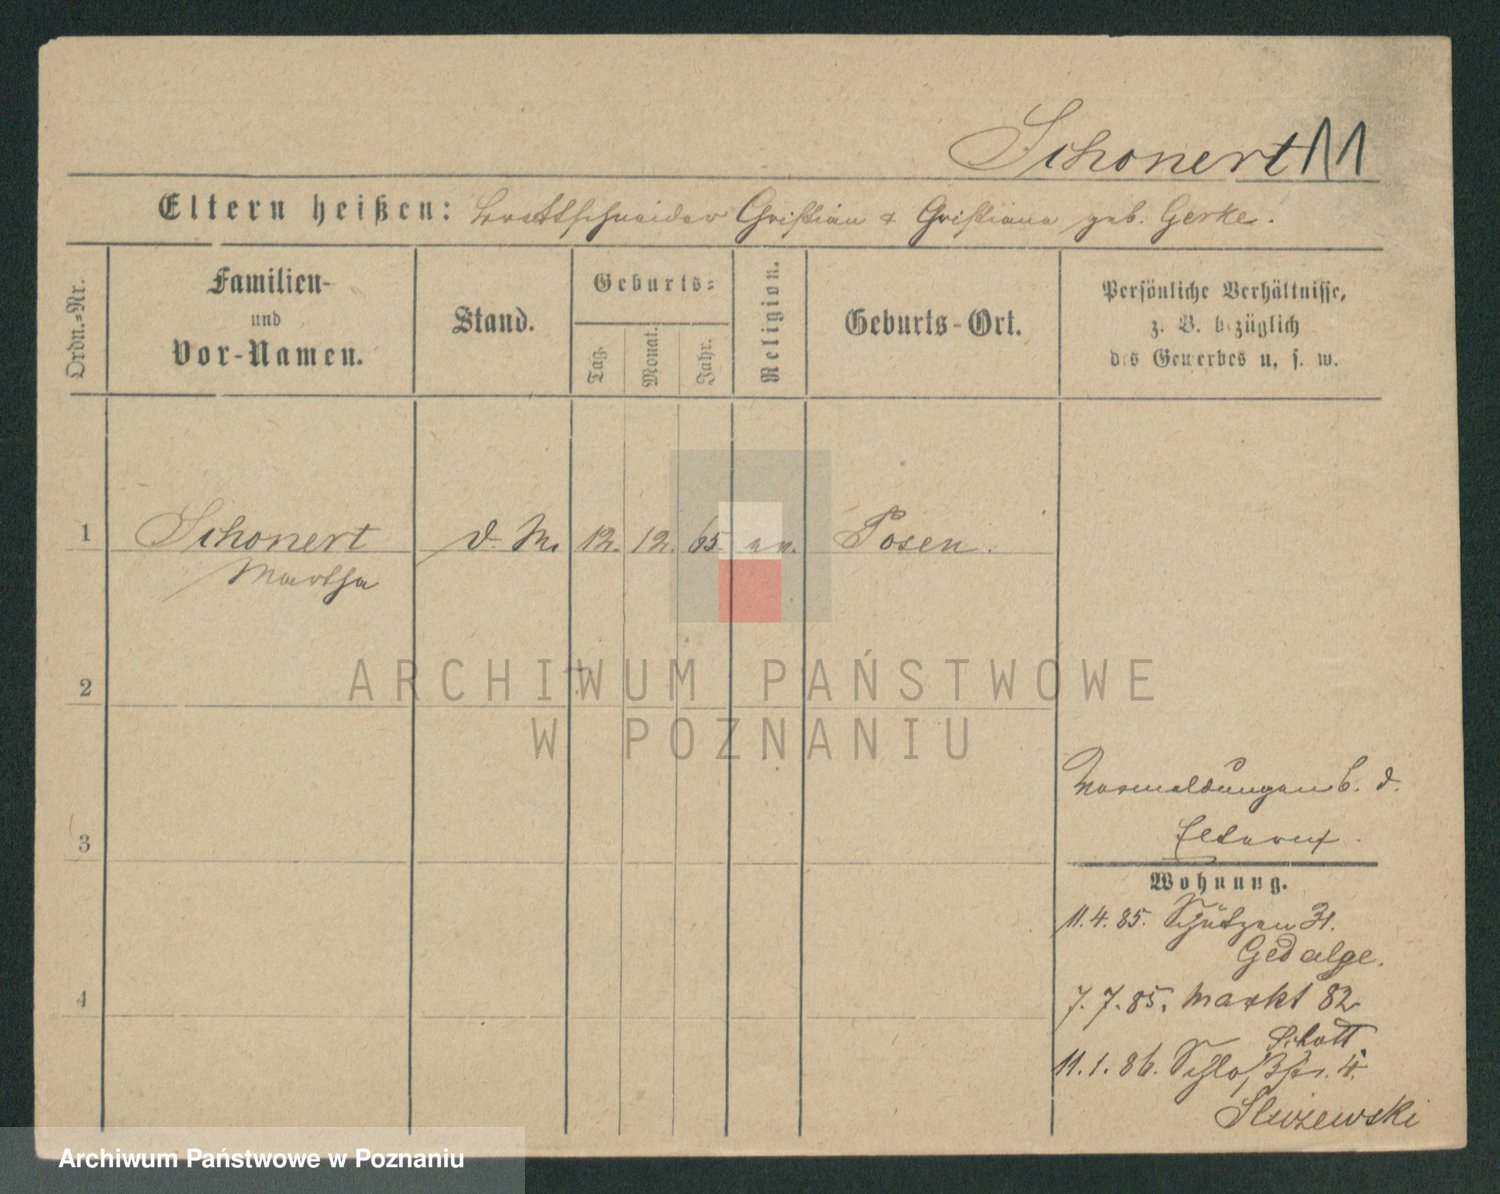 Schonert M
Eltern heißen: Brettschneider Christian & Christiane geb. Gerke.
Ordn.-Nr.
Familien-
und
Vor-Namen.
Stand.
Geburts-
Tag.
Monat.
Jahr.
Religion.
Geburts-Ort.
Persönliche Verhältnisse,
z. B. bezüglich
des Gewerbes u. s. w.
1 Schonert d. M. 12. 12. 65. ev. Posen.
Martha
2
ARCHIWUM PAŃSTWOWE
W POZNANIU
3
4
Vormeldungen b. d.
Eltern
Wohnung.
11.4.85. Schützen 31.
Gedalge.
7.7.85. Markt 82
Schott
11.1.86. Schloßstr. 4.
Sliwzewski
Archiwum Państwowe w Poznaniu